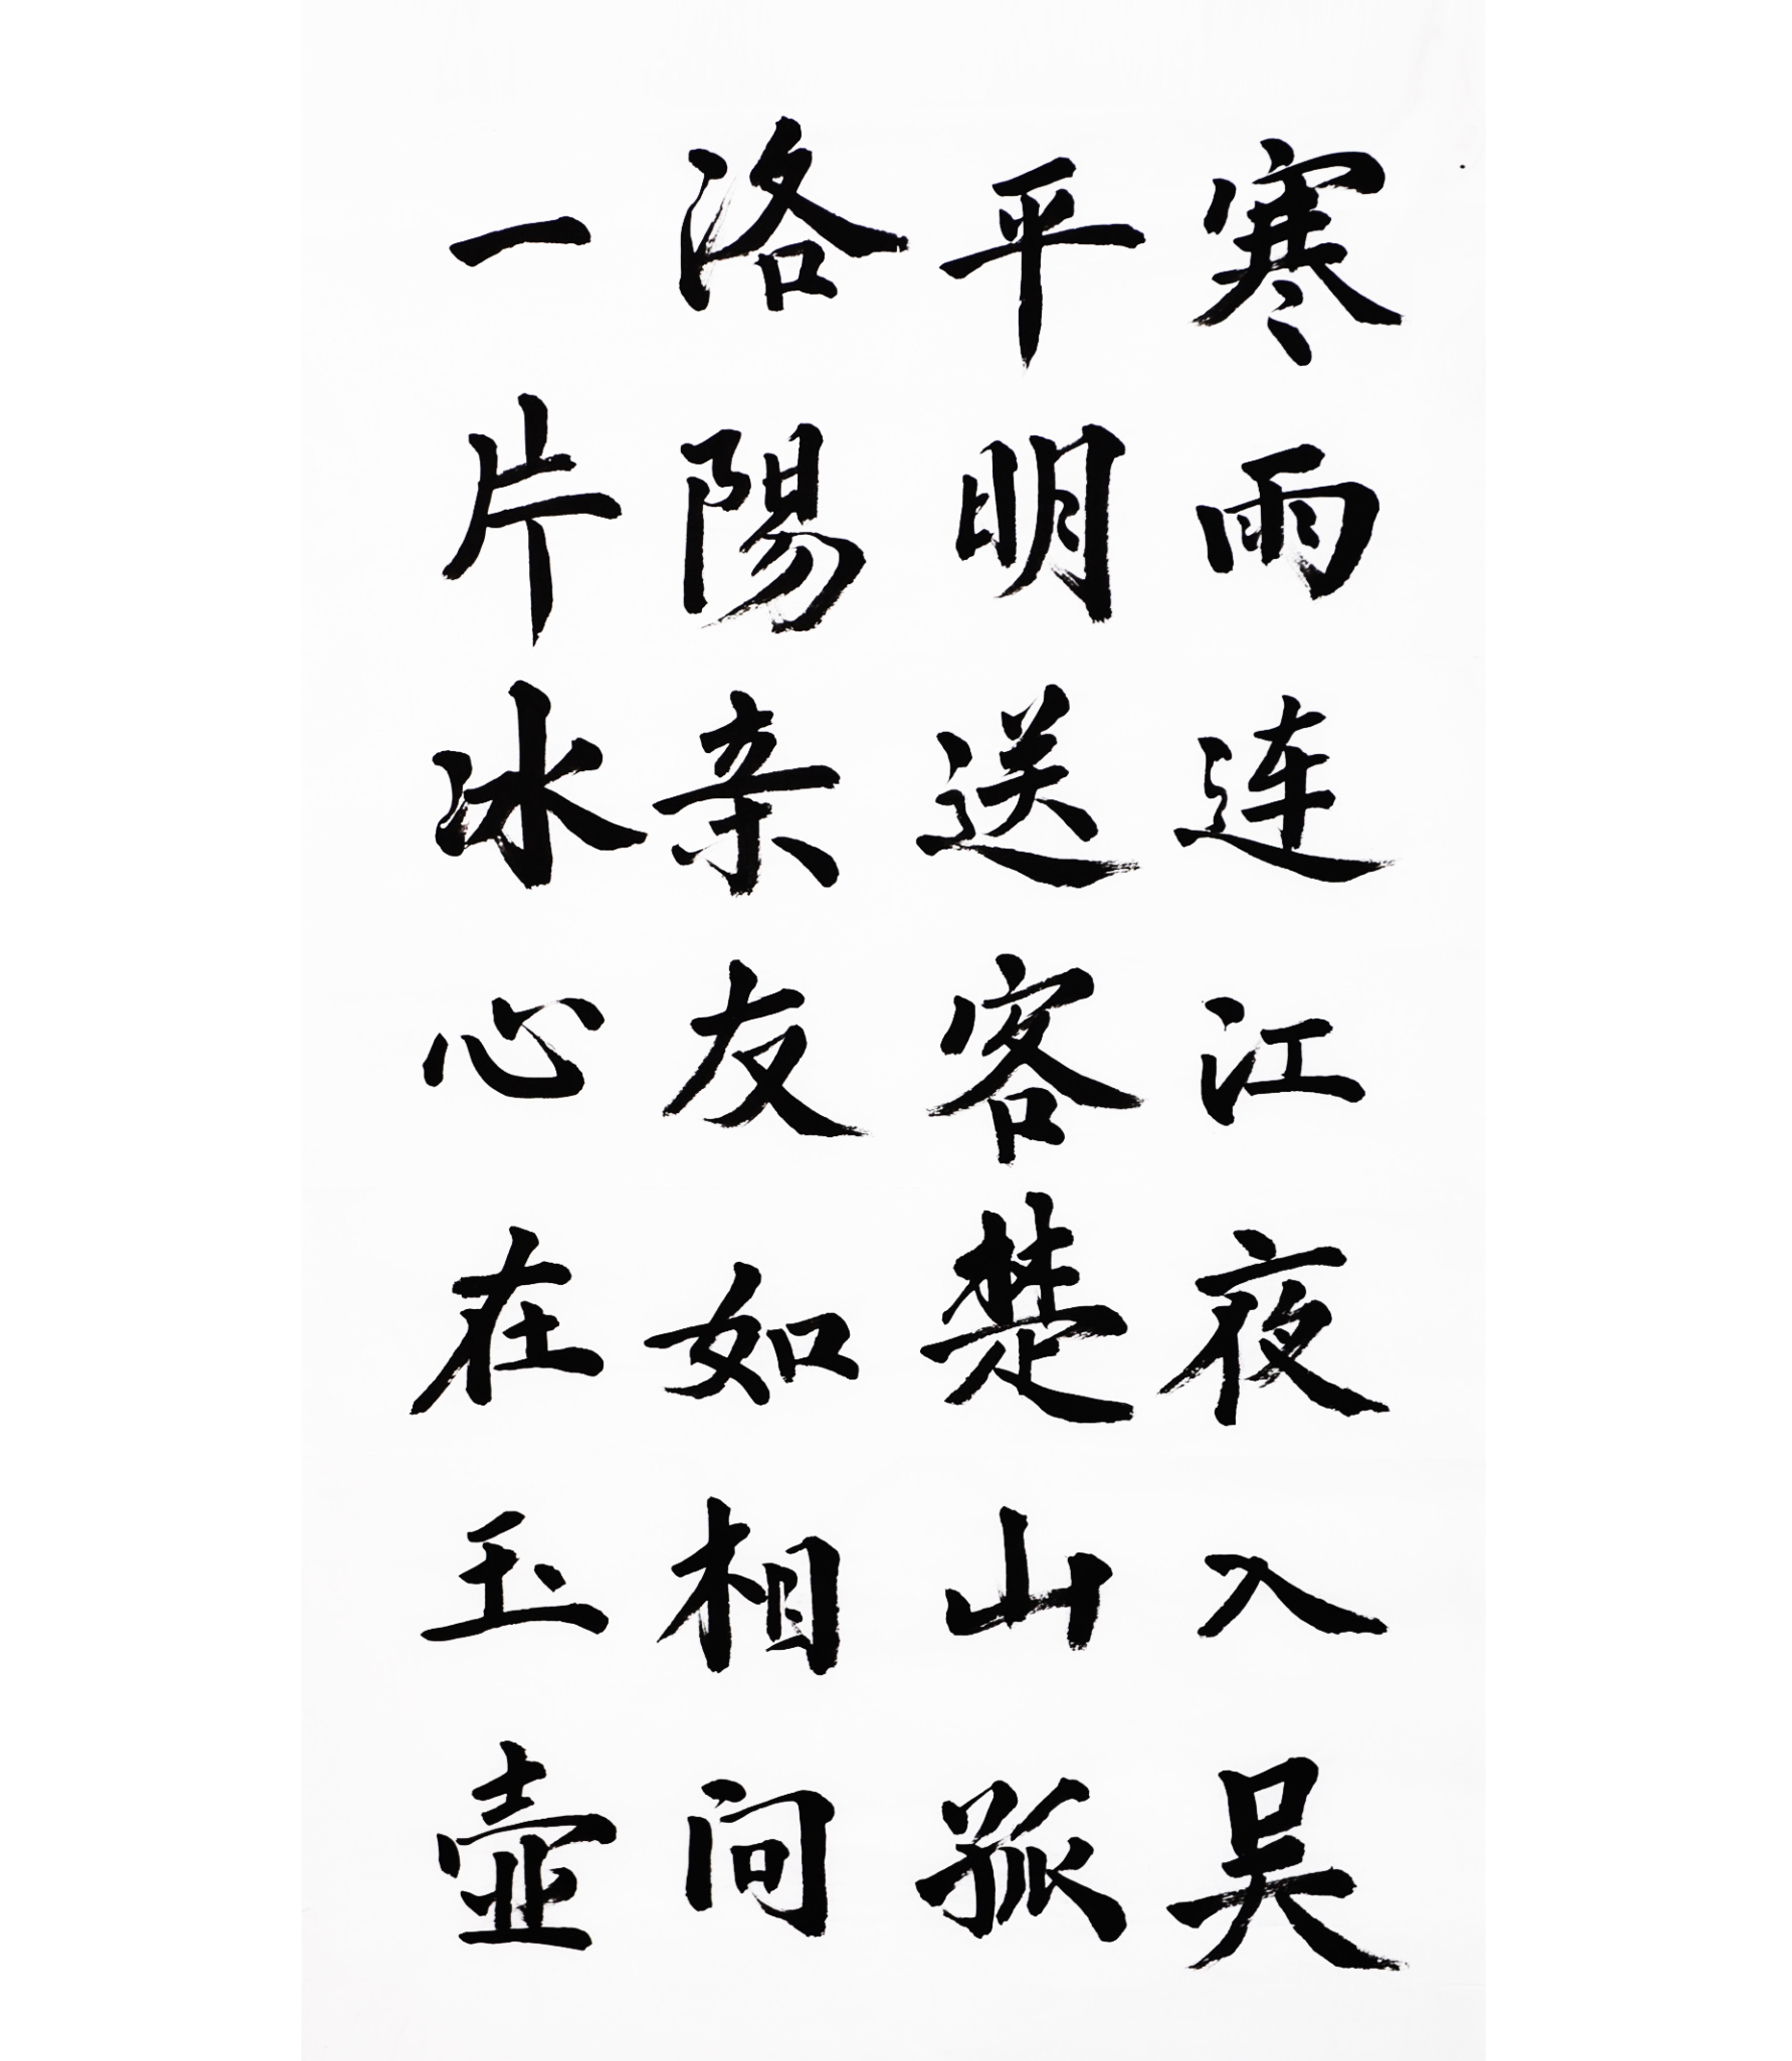 寒雨连江夜入吴
平明送客楚山孤
洛陽亲友如相问
一片冰心在玉壶